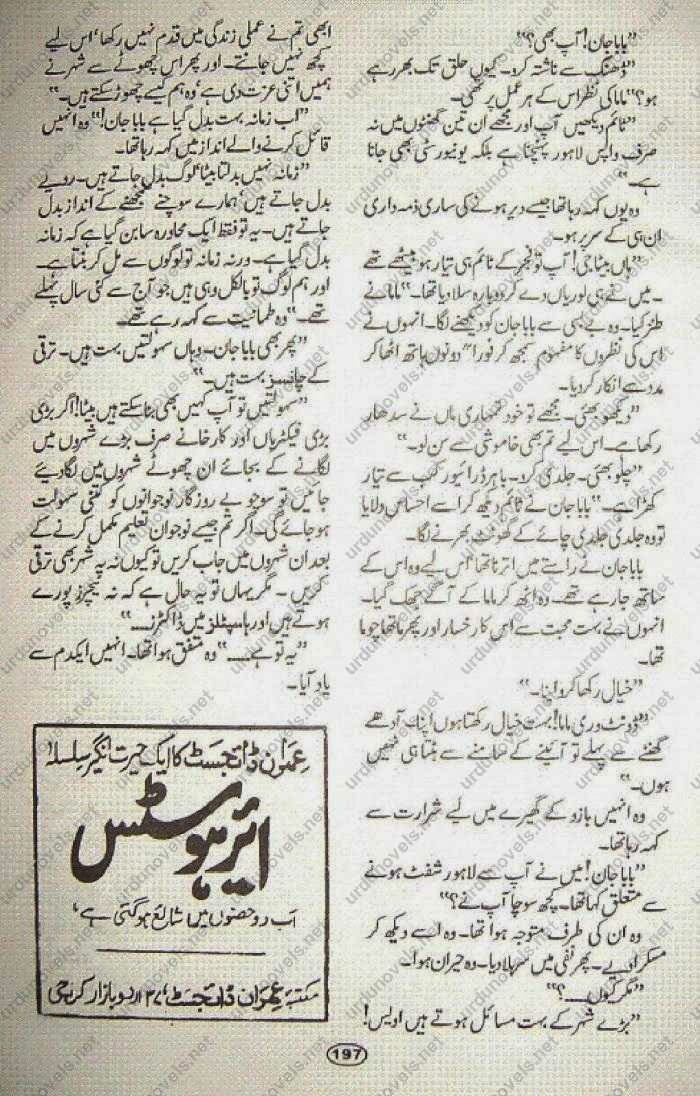 ”بابا جان! آپ بھی؟“
”ڈھنگ سے ناشتہ کرو۔ کیوں حلق تک بھر رہے
ہو؟“ ماما کی نظر اس کے ہر عمل پر تھی۔
”ٹائم دیکھیں آپ اور مجھے ان تین گھنٹوں میں نہ
صرف واپس لاہور پہنچنا ہے بلکہ یونیورسٹی بھی جانا
ہے۔“
وہ یوں کہہ رہا تھا جیسے دیر ہونے کی ساری ذمہ داری
ان ہی کے سر پر ہو۔
”ہاں بیٹا جی! آپ تو فجر کے ٹائم ہی تیار ہو بیٹھے تھے
۔ میں نے ہی لوریاں دے کر دوبارہ سلا دیا تھا۔“ ماما نے
طنز کیا۔ وہ بے بسی سے بابا جان کو دیکھنے لگا۔ انہوں نے
اس کی نظروں کا مفہوم سمجھ کر فورا“ دونوں ہاتھ اٹھا کر
مدد سے انکار کر دیا۔
”دیکھو بھئی۔ مجھے تو خود تمہاری ماں نے سدھار
رکھا ہے۔ اس لیے تم بھی خاموشی سے سن لو۔“
”چلو بھئی۔ جلدی کرو۔ باہر ڈرائیور کب سے تیار
کھڑا ہے۔“ بابا جان نے ٹائم دیکھ کر اسے احساس دلایا
تو وہ جلدی جلدی چائے کے گھونٹ بھرنے لگا۔
بابا جان نے راستے میں اترنا تھا‘ اس لیے وہ اس کے
ساتھ جا رہے تھے۔ وہ اٹھ کر ماما کے آگے جھک گیا۔
انہوں نے بہت محبت سے اس کا رخسار اور پھر ماتھا چوما
تھا۔
”خیال رکھا کرو اپنا۔“
”ڈونٹ وری ماما! بہت خیال رکھتا ہوں اپنا۔ آدھے
گھنٹے سے پہلے تو آئینے کے سامنے سے ہٹتا ہی نہیں
ہوں۔“
وہ انہیں بازو کے گھیرے میں لیے شرارت سے
کہہ رہا تھا۔
”بابا جان! میں نے آپ سے لاہور شفٹ ہونے
سے متعلق کہا تھا۔ کچھ سوچا آپ نے؟“
وہ ان کی طرف متوجہ ہوا تھا۔ وہ اسے دیکھ کر
مسکرا دیے۔ پھر نفی میں سر ہلا دیا۔ وہ حیران ہوا۔
”مگر کیوں۔۔۔؟“
”بڑے شہر کے بہت مسائل ہوتے ہیں اویس!
ابھی تم نے عملی زندگی میں قدم نہیں رکھا‘ اس لیے
کچھ نہیں جانتے۔ اور پھر اس چھوٹے سے شہر نے
ہمیں اتنی عزت دی ہے‘ وہ ہم کیسے چھوڑ سکتے ہیں۔“
”اب زمانہ بہت بدل گیا ہے بابا جان!“ وہ انہیں
قائل کرنے والے انداز میں کہہ رہا تھا۔
”زمانہ نہیں بدلتا بیٹا‘ لوگ بدل جاتے ہیں۔ رویے
بدل جاتے ہیں‘ ہمارے سوچنے سمجھنے کے انداز بدل
جاتے ہیں۔ یہ تو فقط ایک محاورہ سا بن گیا ہے کہ زمانہ
بدل گیا ہے۔ ورنہ زمانہ تو لوگوں سے مل کر بنتا ہے۔
اور ہم لوگ تو بالکل وہی ہیں جو آج سے کئی سال پہلے
تھے۔“ وہ طمانیت سے کہہ رہے تھے۔
”پھر بھی بابا جان۔ وہاں سہولتیں بہت ہیں۔ ترقی
کے چانسز بہت ہیں۔“
”سہولتیں تو آپ کہیں بھی بنا سکتے ہیں بیٹا! اگر بڑی
بڑی فیکٹریاں اور کارخانے صرف بڑے شہروں میں
لگانے کے بجائے ان چھوٹے شہروں میں لگا دیے
جائیں تو سوچو بے روزگار نوجوانوں کو کتنی سہولت
ہو جائے گی۔ اگر تم جیسے نوجوان تعلیم مکمل کرنے کے
بعد ان شہروں میں جاب کریں تو کیوں نہ یہ شہر بھی ترقی
کریں۔ مگر یہاں تو یہ حال ہے کہ نہ ٹیچرز پورے
ہوتے ہیں اور ہاسپٹلز میں ڈاکٹرز۔۔۔“
”یہ تو ہے۔۔۔“ وہ متفق ہوا تھا۔ انہیں ایکدم سے
یاد آیا۔
عمران ڈائجسٹ کا ایک حیرت انگیز سلسلہ
ائیر ہوسٹس
اب دو حصّوں میں شائع ہو گئی ہے‘
مکتبہ عمران ڈائجسٹ‘ ۳۷ اردو بازار کراچی
197
urdunovels.net